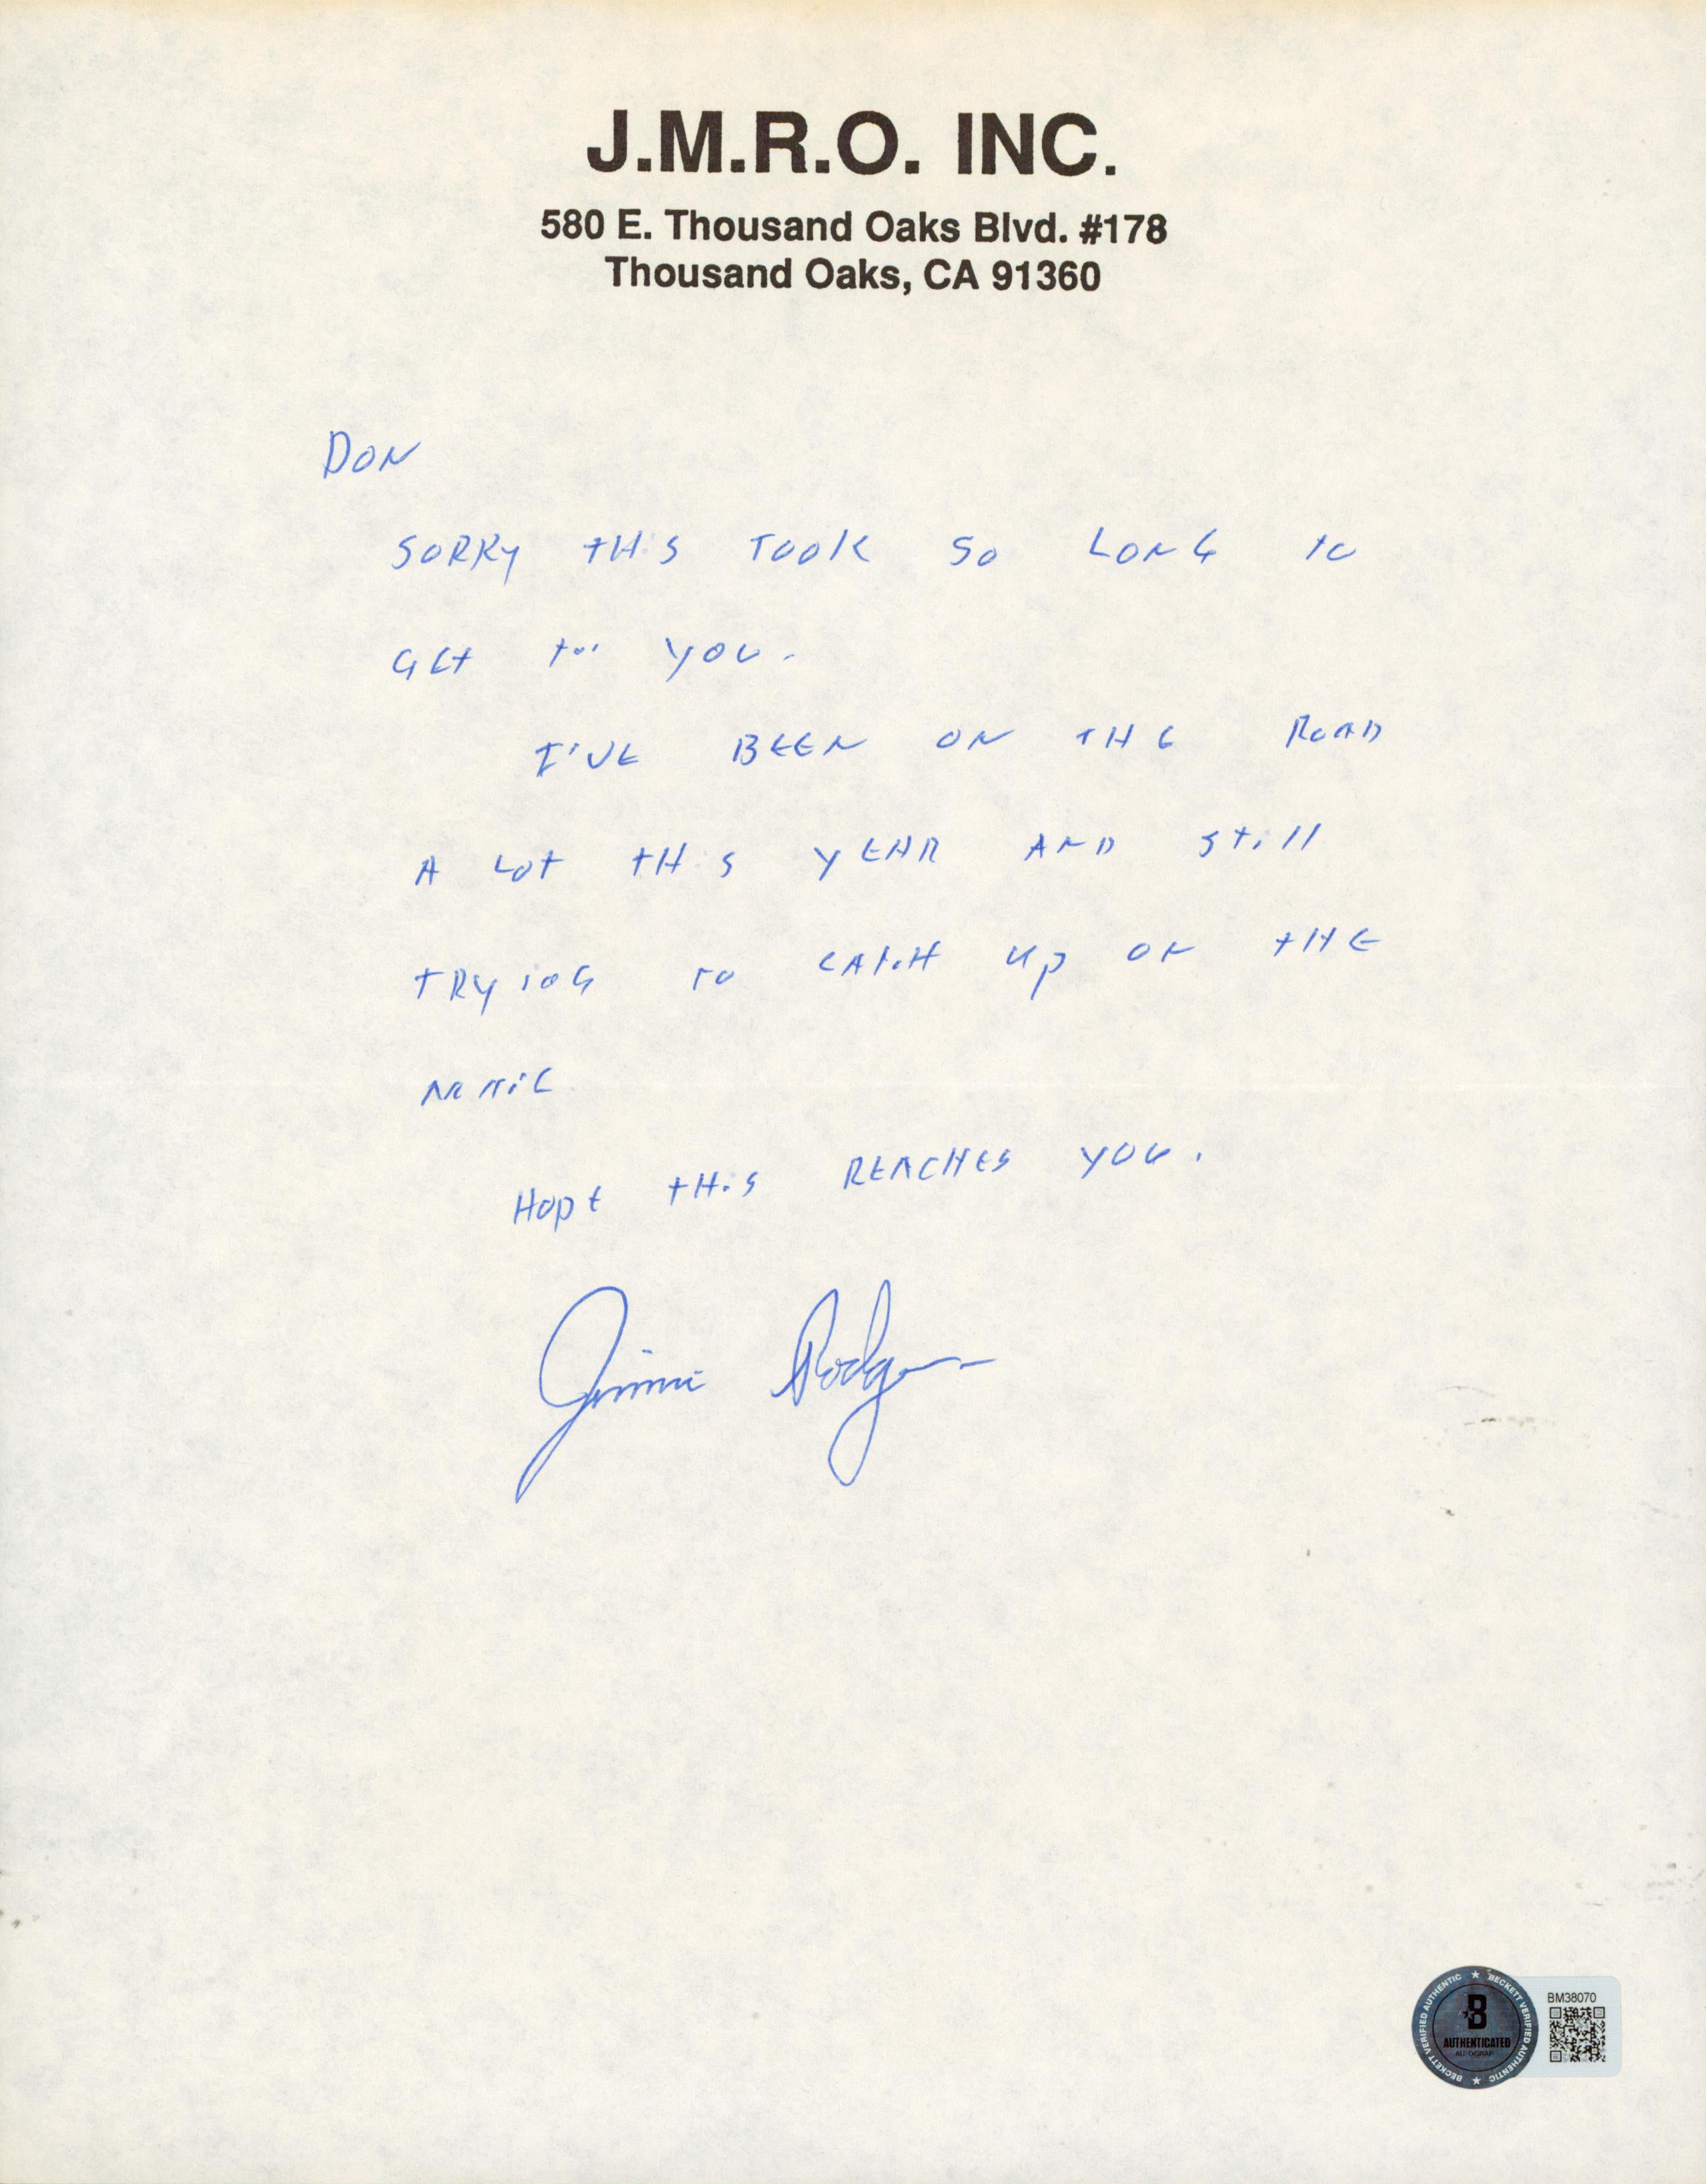 J.M.R.O. INC.
580 E. Thousand Oaks Blvd. #178
Thousand Oaks, CA 91360
DON
SORRY THIS TOOK SO LONG TO
GET TO YOU.
I'VE BEEN ON THE ROAD
A LOT THIS YEAR AND STILL
TRYING TO CATCH UP ON THE
MAIL
HOPE THIS REACHES YOU.
Jimmie Rodgers
BM38070
BECKETT VERIFIED AUTHENTIC ★ BECKETT VERIFIED AUTHENTIC ★
B
AUTHENTICATED
AUTOGRAP